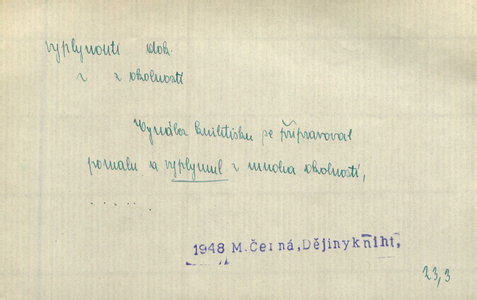 vyplynouti dok.
z z okolností
Vynález knihtisku se připravoval
pomalu a vyplynul z mnoha okolností,
......
1948 M.Černá, Dějiny knihy,
23,3